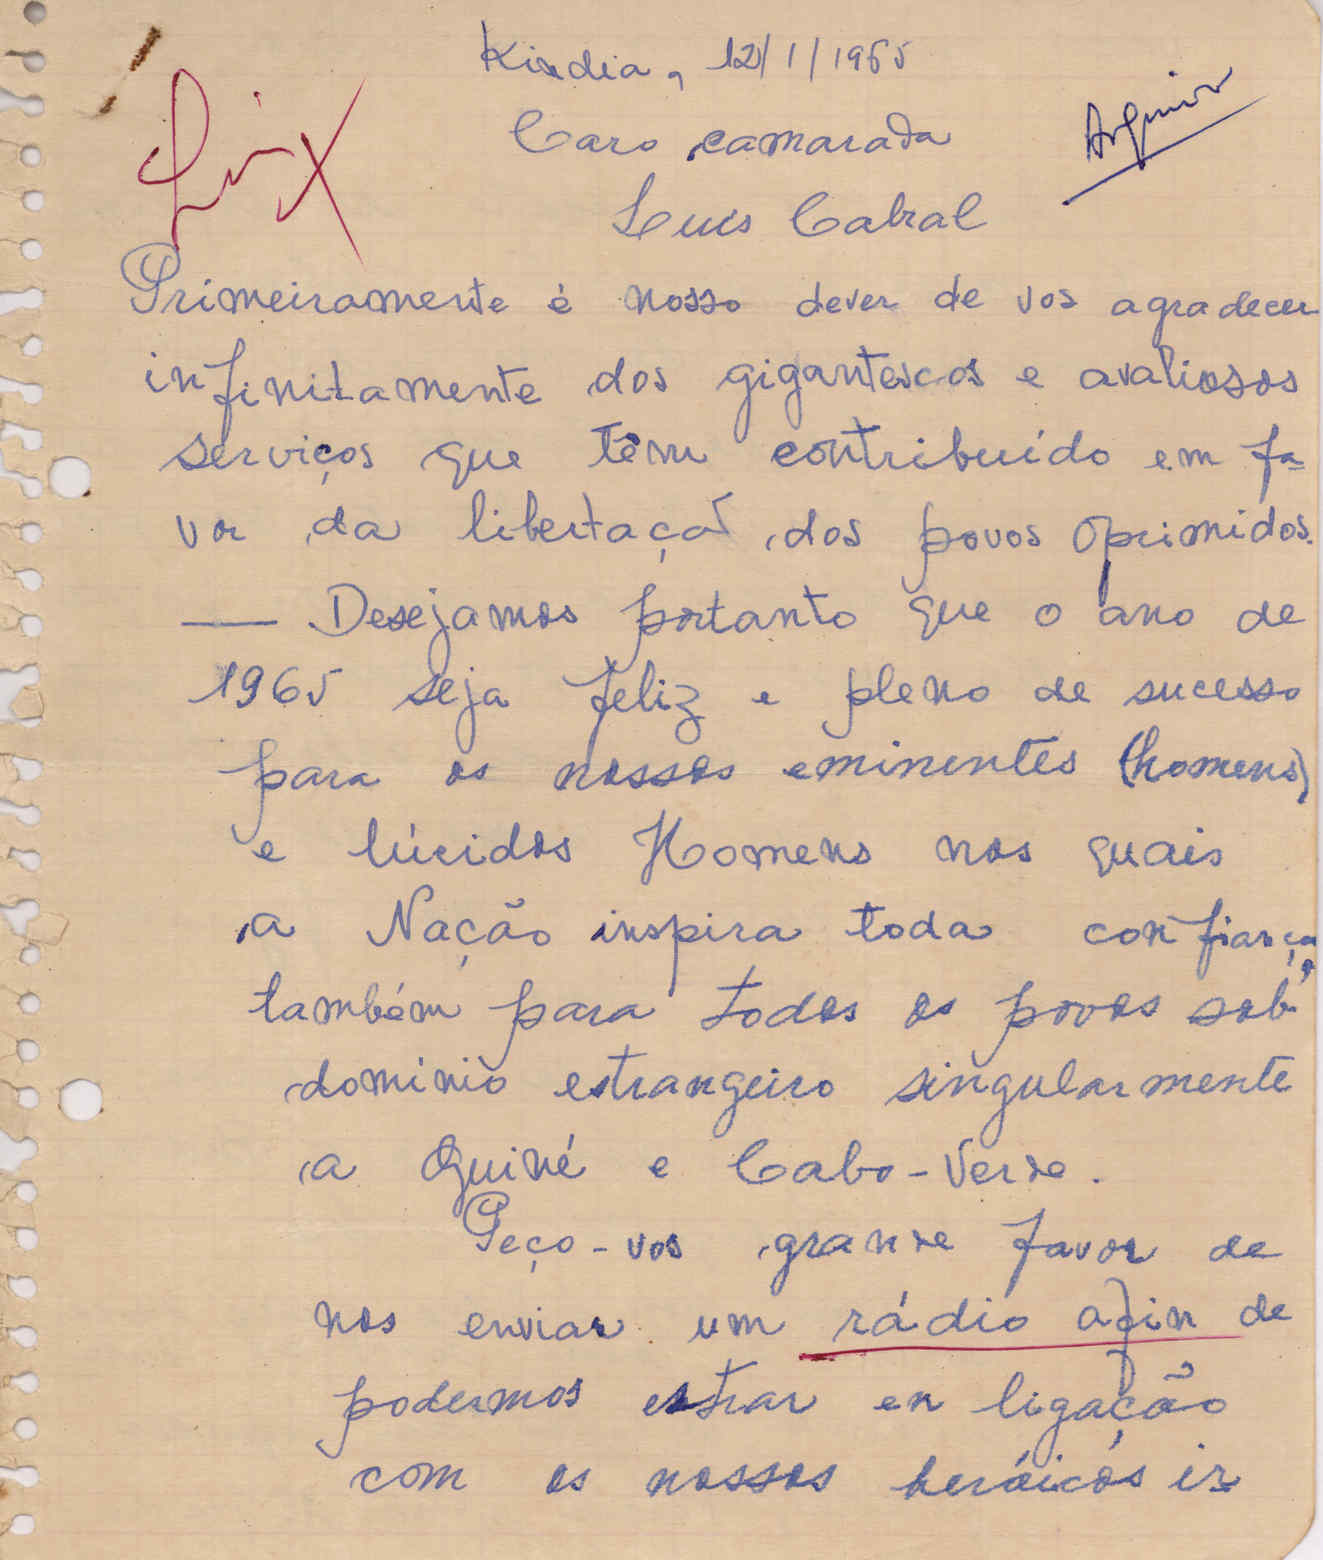 Kindia, 12/1/1965
Caro camarada
Luís Cabral
Primeiramente é nosso dever de vos agradecer
infinitamente dos gigantescos e avaliosos
serviços que têm contribuído em fa-
vor da libertaçã dos povos oprimidos.
— Desejamos portanto que o ano de
1965 seja feliz e pleno de sucesso
para os nossos eminentes (homens)
e lúcidos Homens nos quais
a Nação inspira toda confiança,
também para todos os povos sob
domínio estrangeiro singularmente
a Guiné e Cabo-Verde.
Peço-vos grande favor de
nos enviar um rádio afin de
podermos estrar en ligação
com os nossos heróicos ir-